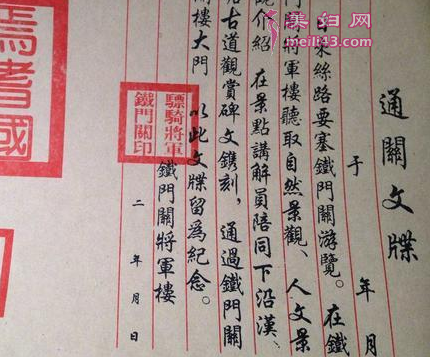 美妇网
meili43.com
通關文牒
于 年 月
來絲路要塞鐵門關游覽。在鐵
將軍樓聽取自然景觀、人文景
介紹 在景點講解員陪同下沿漢、
古道觀賞碑文鐫刻，通過鐵門關
樓大門 以此文牒留爲紀念。
鐵門關將軍樓
二 年 月 日
驃騎將軍
鐵門關印
焉耆國